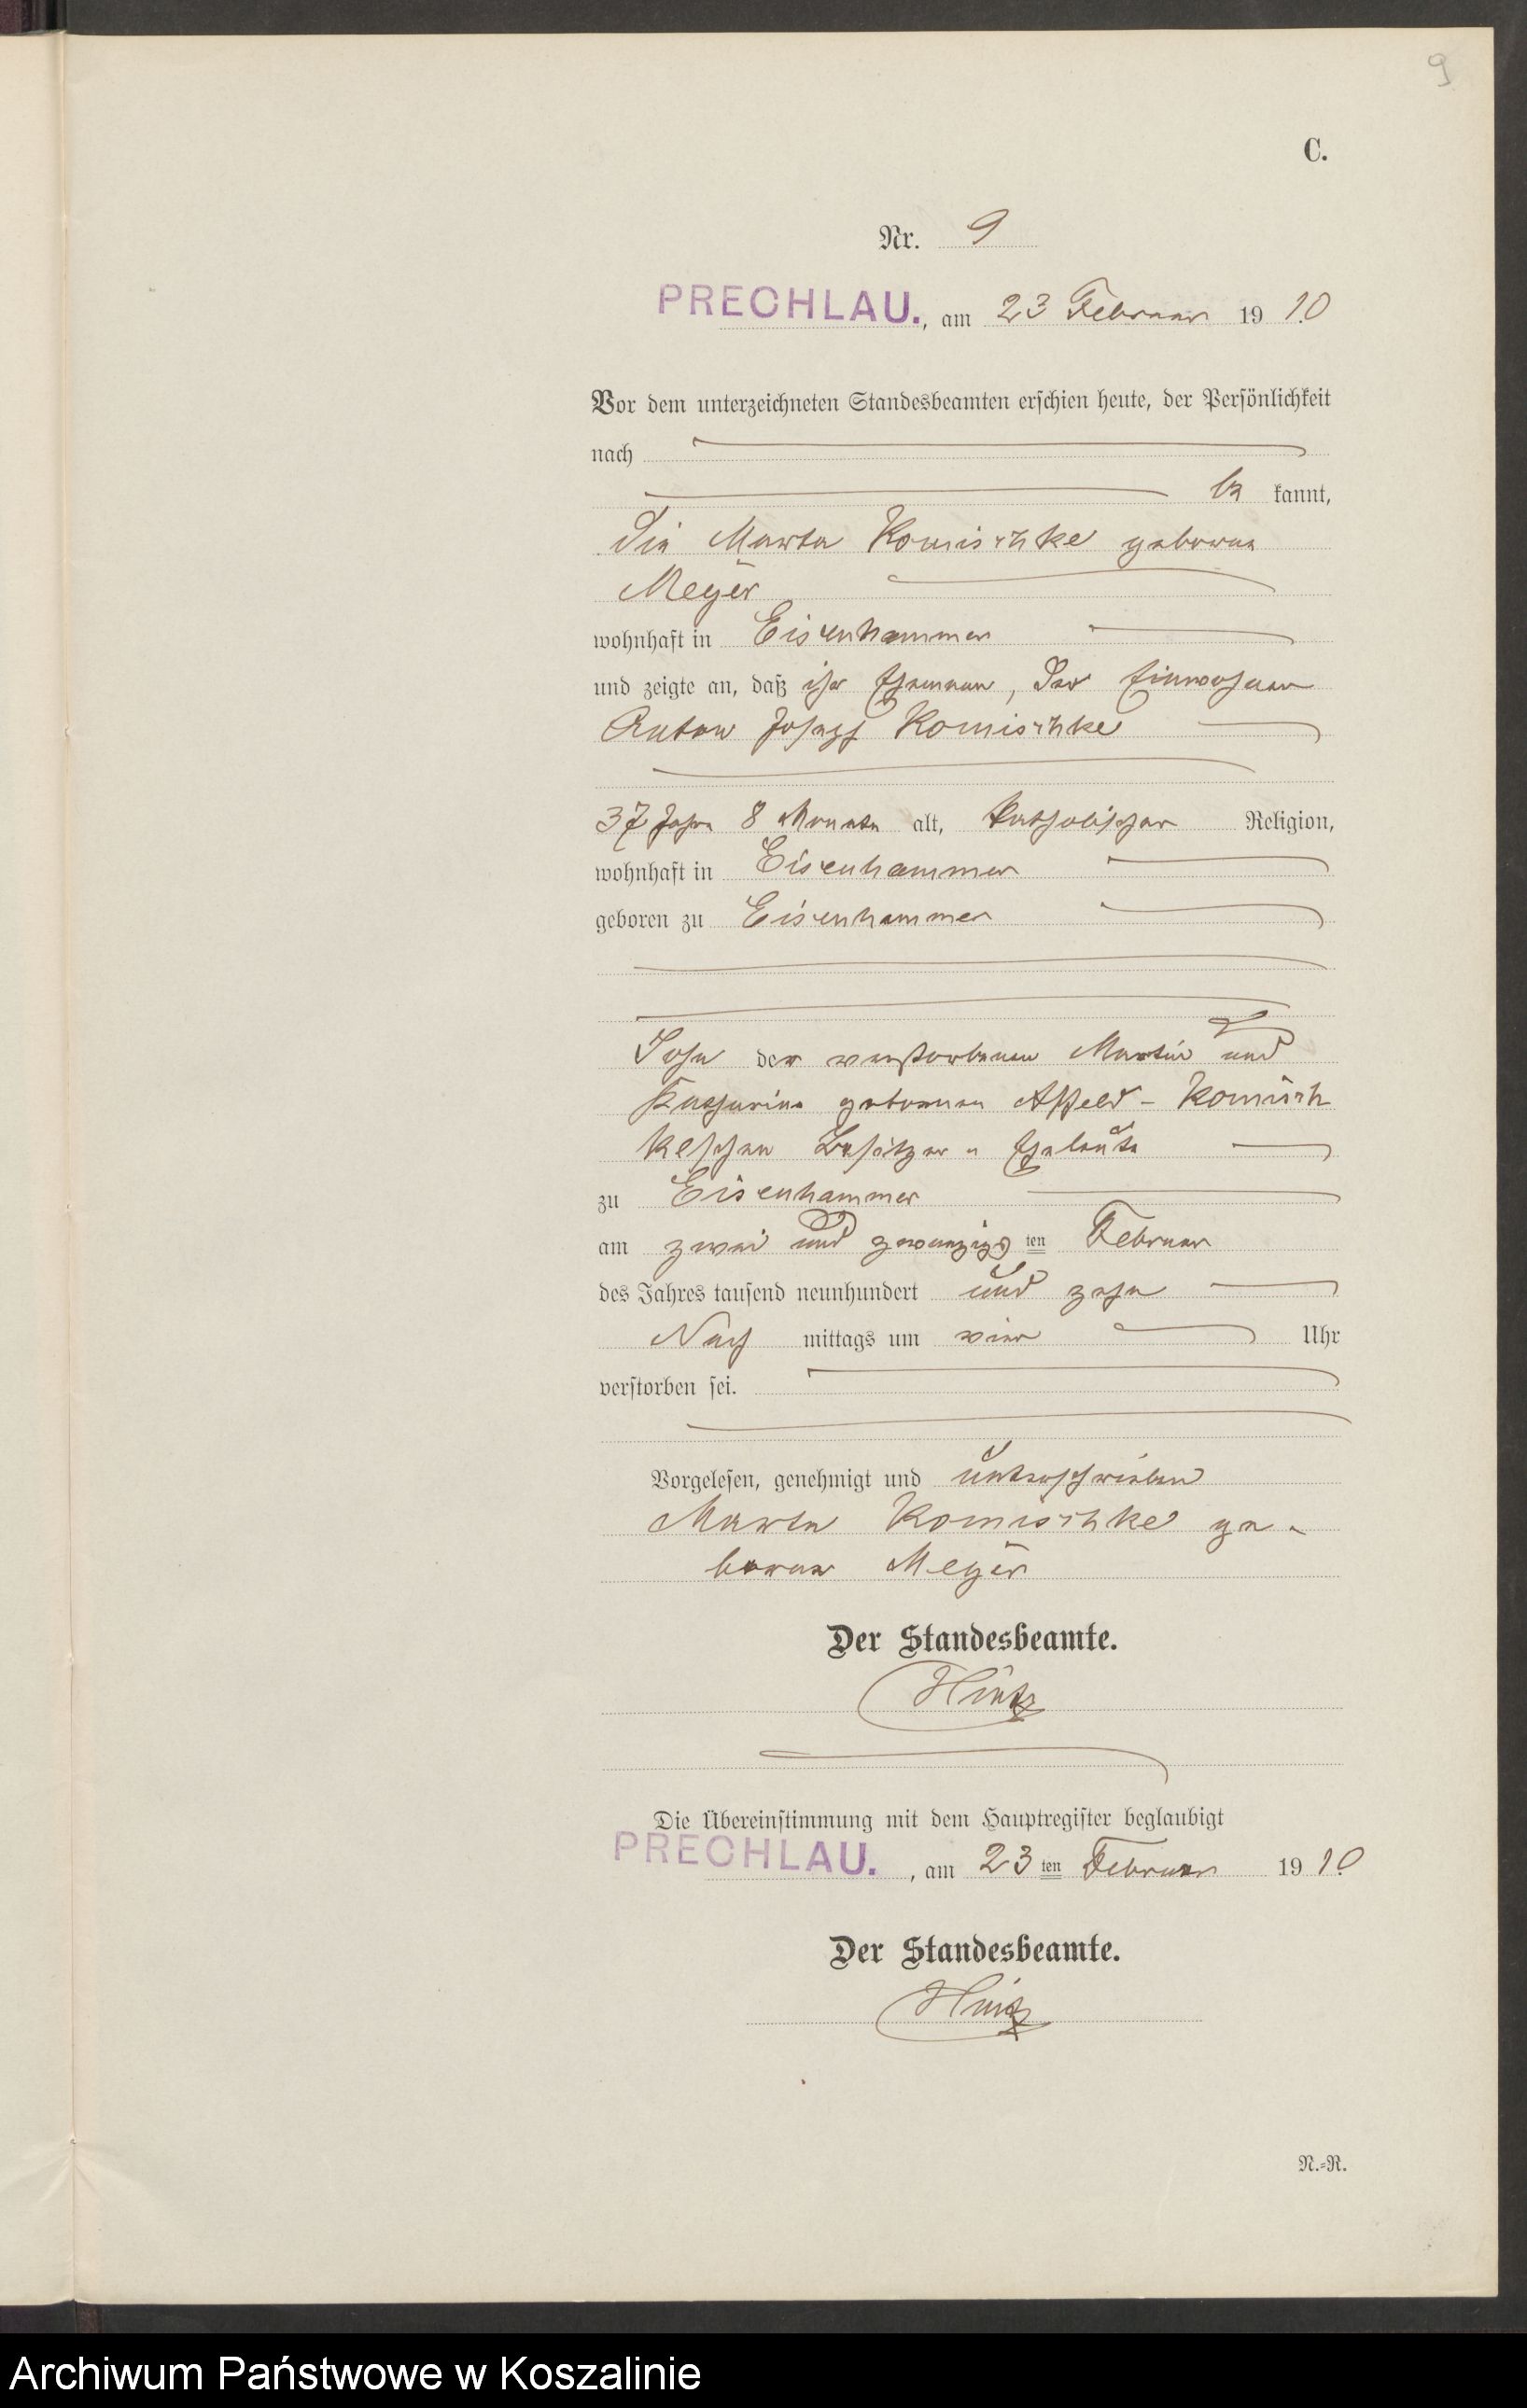 9
C.
Nr. 9
PRECHLAU., am 23 Februar 1910
Vor dem unterzeichneten Standesbeamten erschien heute, der Persönlichkeit
nach
be kannt,
Die Marta Komischke geborene
Meyer
wohnhaft in Eisenhammer
und zeigte an, daß ihr Ehemann, Der Einwohner
Anton Joseph Komischke
37 Jahre 8 Monate alt, katholischer Religion,
wohnhaft in Eisenhammer
geboren zu Eisenhammer
Sohn der verstorbenen Martin und
Katharina geborenen Affeld - Komisch
keschen Besitzer - Eheleute
zu Eisenhammer
am zwei und zwanzigsten Februar
des Jahres tausend neunhundert und zehn
Nach mittags um vier Uhr
verstorben sei.
Vorgelesen, genehmigt und unterschrieben
Marta Komischke ge-
borene Meyer
Der Standesbeamte.
Hintz
Die Übereinstimmung mit dem Hauptregister beglaubigt
PRECHLAU. , am 23ten Februar 1910
Der Standesbeamte.
Hintz
N.=R.
Archiwum Państwowe w Koszalinie